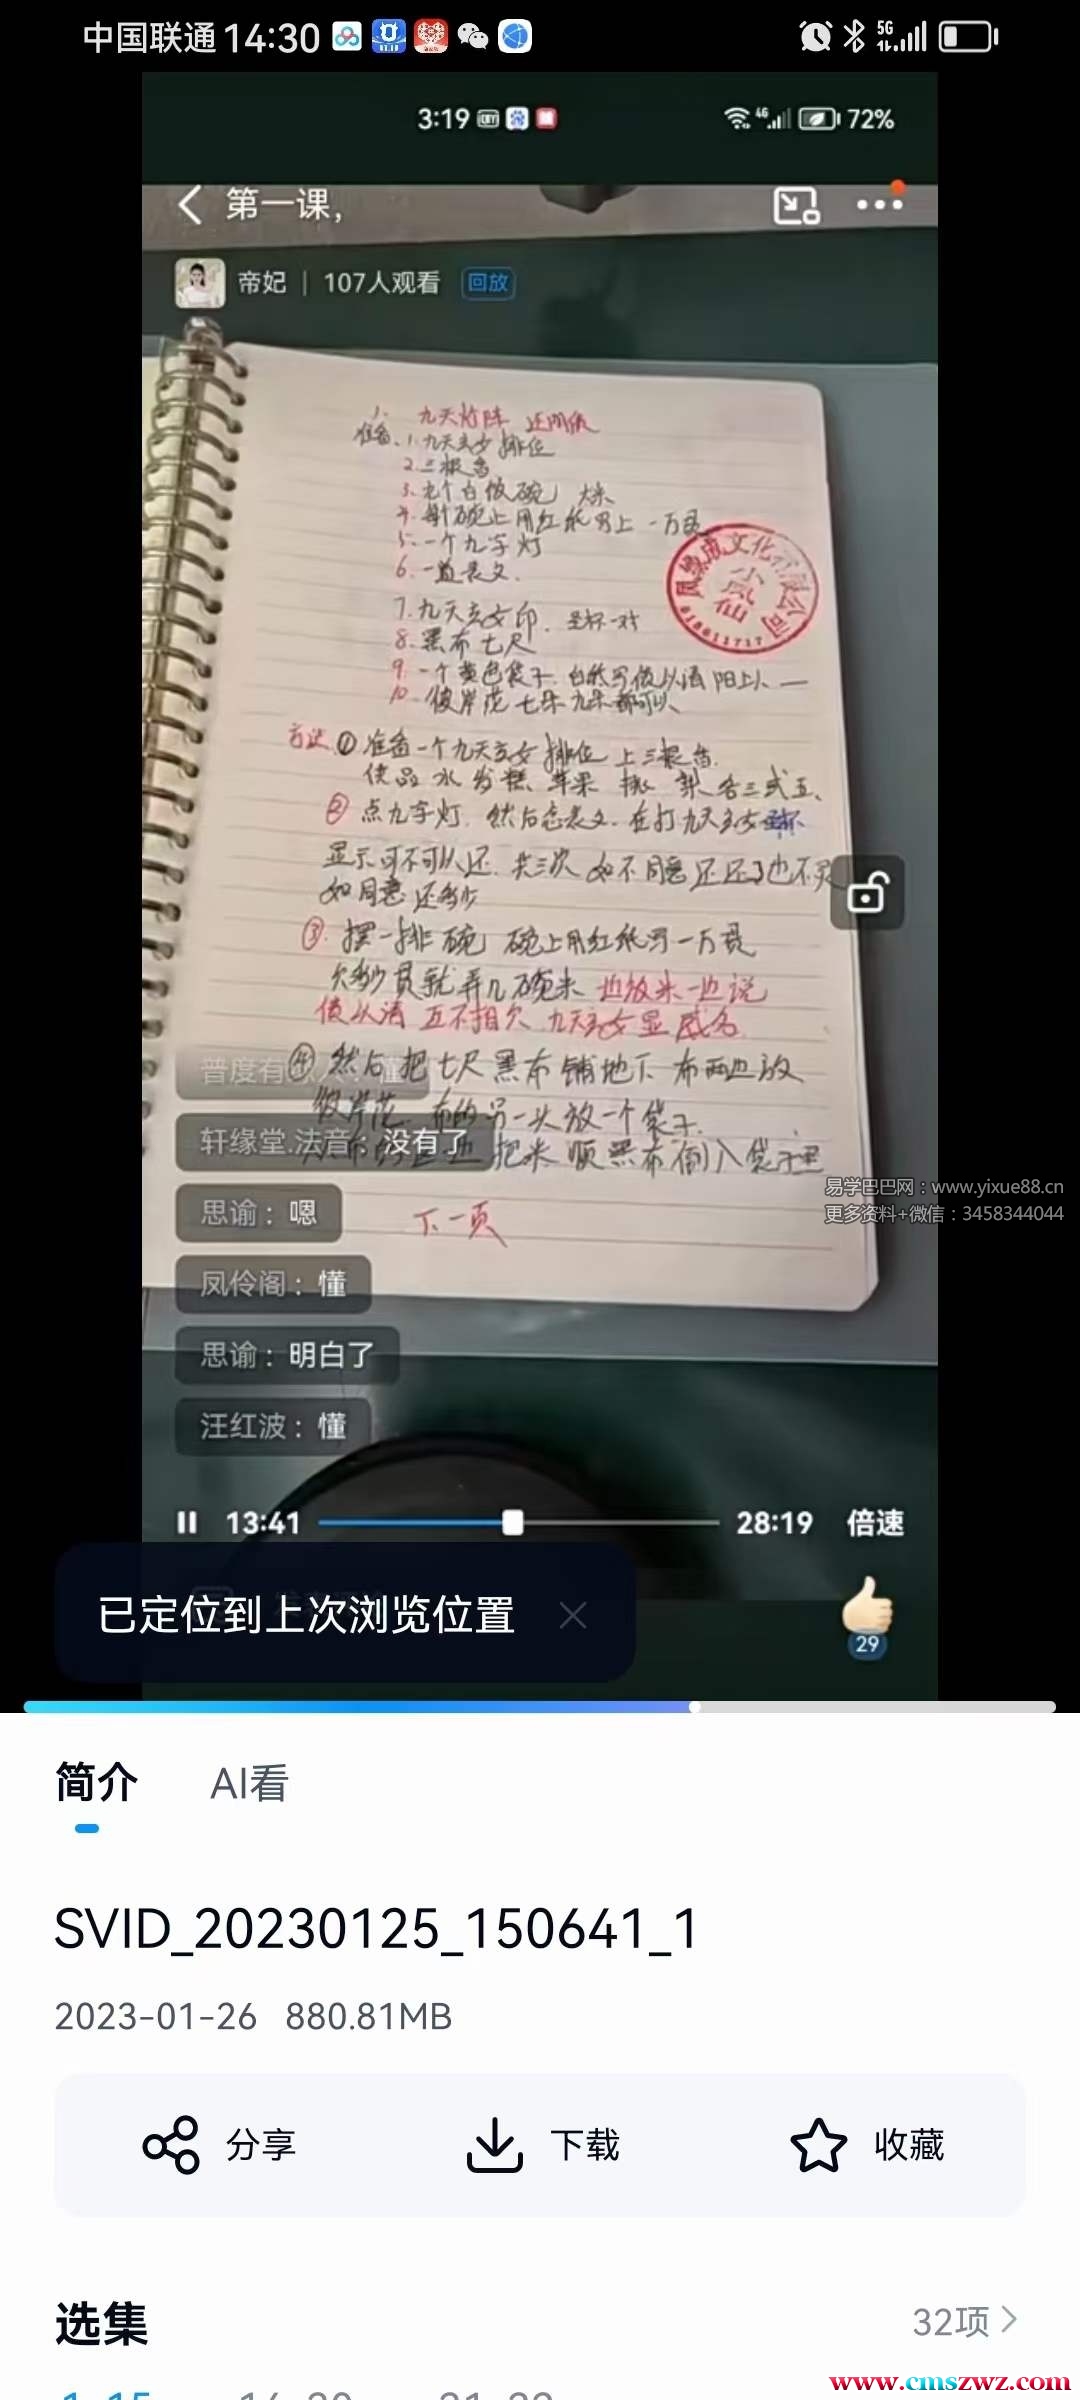 中国联通 14:30
3:19
4G
72%
第一课,
帝妃 | 107人观看 回放
1. 九天灯阵 还阴债
准备、1.九天玄女 排位
2.三根香
3.九个白饭碗 大米
4.每个碗上用红纸写上 一万贯
5.一个九字灯
6.一道表文.
7.九天玄女印. 圣杯一对
8.黑布七尺
9.一个黄色袋子.
10.彼岸花 七朵九朵都可以
凤缘成文化有限公司
小凤仙
方法①准备一个九天玄女排位 上三根香.
供品 水 发糕 苹果 桃 梨 各三或五、
②点九字灯. 然后念表文. 在打九天玄女圣杯
显示可不可以还. 共三次 如不同意还还了也不灵
如同意还多少
③. 摆一排碗 碗上用红纸写一万贯
欠多少贯就弄几碗米 边放米一边说
债以清 互不相欠 九天玄女显威名.
④然后把七尺黑布铺地下 布两边放
彼岸花. 布的另一头放一个袋子.
把米顺黑布倒入袋子里
下一页
普度有 懂
轩缘堂.法音: 没有了
思谕: 嗯
凤伶阁: 懂
思谕: 明白了
汪红波: 懂
易学巴巴网：www.yixue88.cn
更多资料+微信：3458344044
13:41 28:19 倍速
已定位到上次浏览位置
29
简介 AI看
SVID_20230125_150641_1
2023-01-26 880.81MB
分享 下载 收藏
选集 32项
www.cmszwz.com